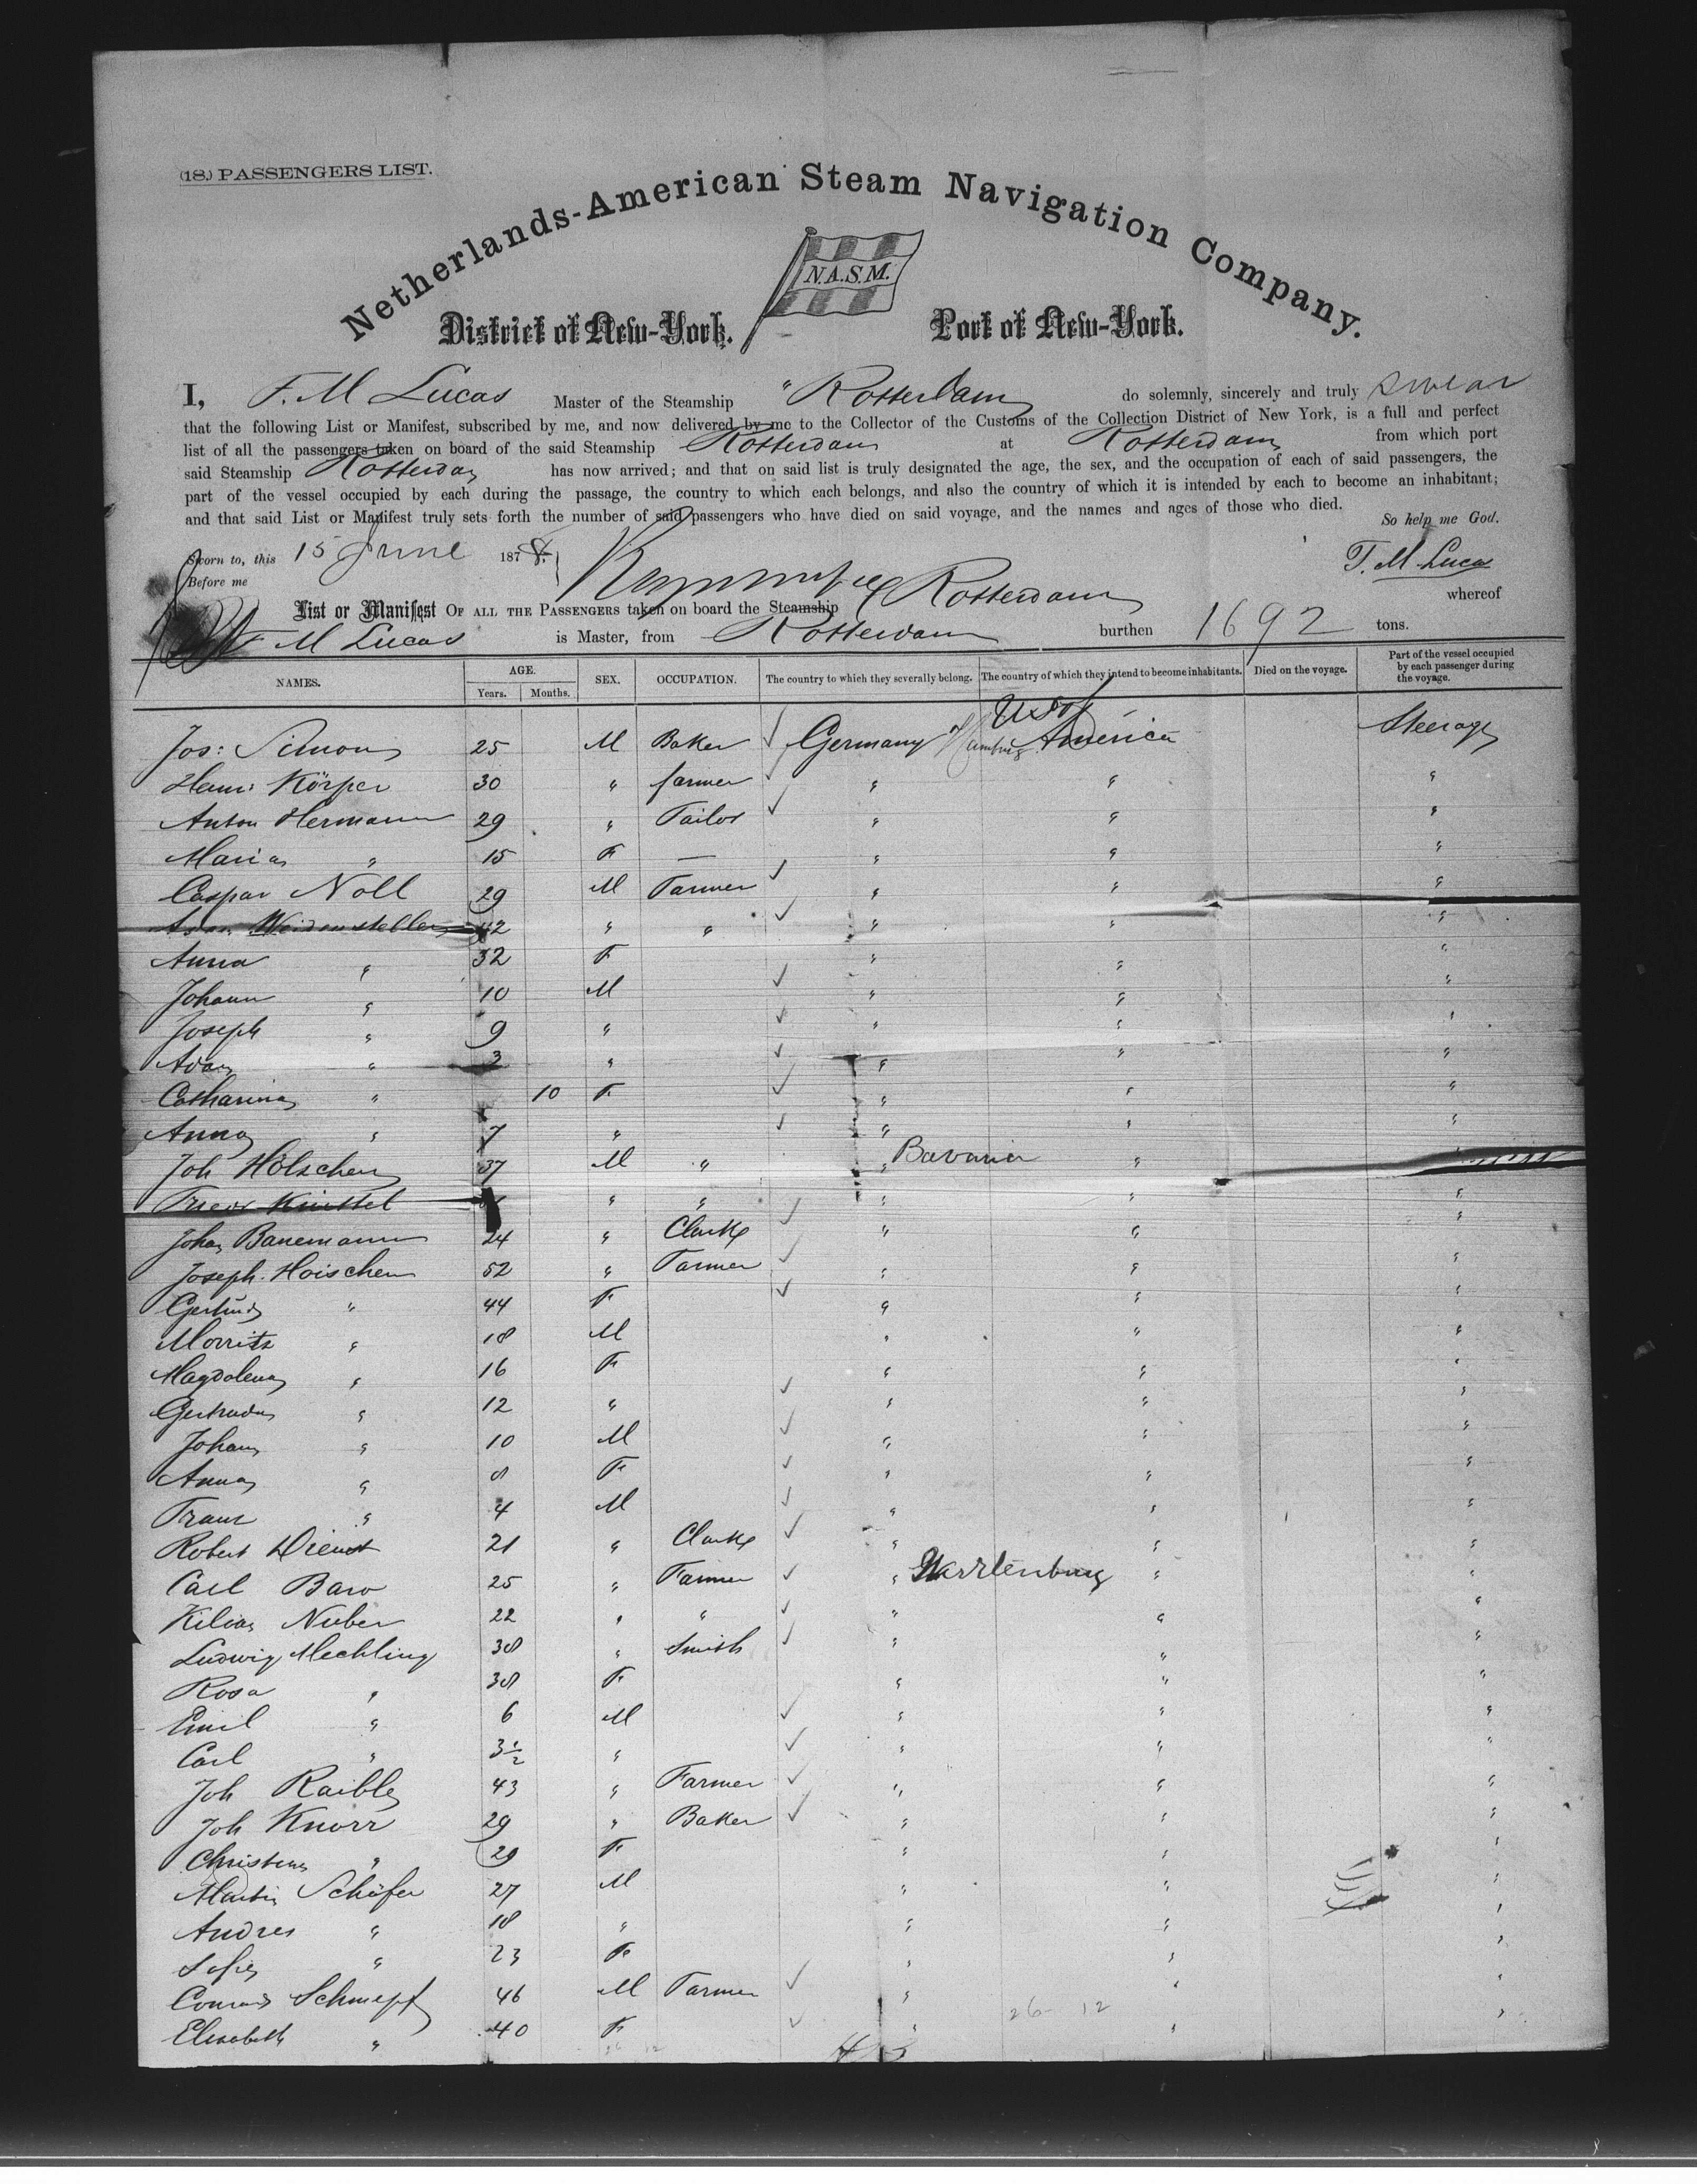 (18.) PASSENGERS LIST.
Netherlands-American Steam Navigation Company.
N.A.S.M.
District of New-York. Port of New-York.
I, F. M Lucas Master of the Steamship " Rotterdam do solemnly, sincerely and truly swear
that the following List or Manifest, subscribed by me, and now delivered by me to the Collector of the Customs of the Collection District of New York, is a full and perfect
list of all the passengers taken on board of the said Steamship Rotterdam at Rotterdam from which port
said Steamship Rotterdam has now arrived; and that on said list is truly designated the age, the sex, and the occupation of each of said passengers, the
part of the vessel occupied by each during the passage, the country to which each belongs, and also the country of which it is intended by each to become an inhabitant;
and that said List or Manifest truly sets forth the number of said passengers who have died on said voyage, and the names and ages of those who died.
So help me God.
Sworn to, this 15 June 1878. F. M. Lucas
Before me
List or Manifest OF ALL THE PASSENGERS taken on board the Steamship Rotterdam whereof
F M Lucas is Master, from Rotterdam burthen 1692 tons.
NAMES. AGE. Years. Months. SEX. OCCUPATION. The country to which they severally belong. The country of which they intend to become inhabitants. Died on the voyage. Part of the vessel occupied by each passenger during the voyage.
Jos: Simon 25 M Baker Germany US of America Steerage
Henri Körper 30 " farmer " " "
Anton Hermann 29 " Tailor " " "
Maria " 15 F — " " "
Caspar Noll 29 M Farmer " " "
Weidensteller 42 " " " " "
Anna " 32 F " " "
Johann " 10 M " " "
Joseph " 9 " " " "
Adam " 3 " " " "
Catharina " 10 F " " "
Anna " 7 " " " "
Joh Hölschen 37 M " " Bavaria " "
" " " " "
Johan Banemann 24 " Clarke " " "
Joseph Hoischen 52 " Farmer " " "
Gertrud " 44 F " " "
Morritz " 18 M " " "
Magdalena " 16 F " " "
Gertruda " 12 " " " "
Johann " 10 M " " "
Anna " 8 F " " "
Franz " 4 M " " "
Robert Dienst 21 " Clarke " " "
Carl Baro 25 " Farmer " " "
Kilian Nuber 22 " " " " "
Ludwig Mechling 38 " Smith " " "
Rosa " 38 F " " "
Emil " 6 M " " "
Carl " 3½ " " " "
Joh Raible 43 " Farmer " " "
Joh Knorr 29 " Baker " " "
Christina " 29 F " " "
Martin Schäfer 27 M " " "
Andres " 18 " " " "
Sofie " 23 F " " "
Conrad Schnepf 46 M Farmer " " "
Elisabeth " 40 F " " "
26 12